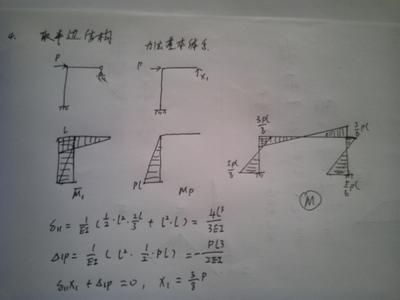 4. 取半边结构 力法基本体系
P P X₁
l
M̄₁ Pl Mp
3Pl/8 3Pl/8
5Pl/8 5Pl/8
M
δ₁₁ = 1/EI (1/2·l²·2l/3 + l²·l) = 4l³/3EI
Δ₁P = 1/EI (l²·1/2·Pl) = -Pl³/2EI
δ₁₁X₁ + Δ₁P = 0, X₁ = 3/8 P